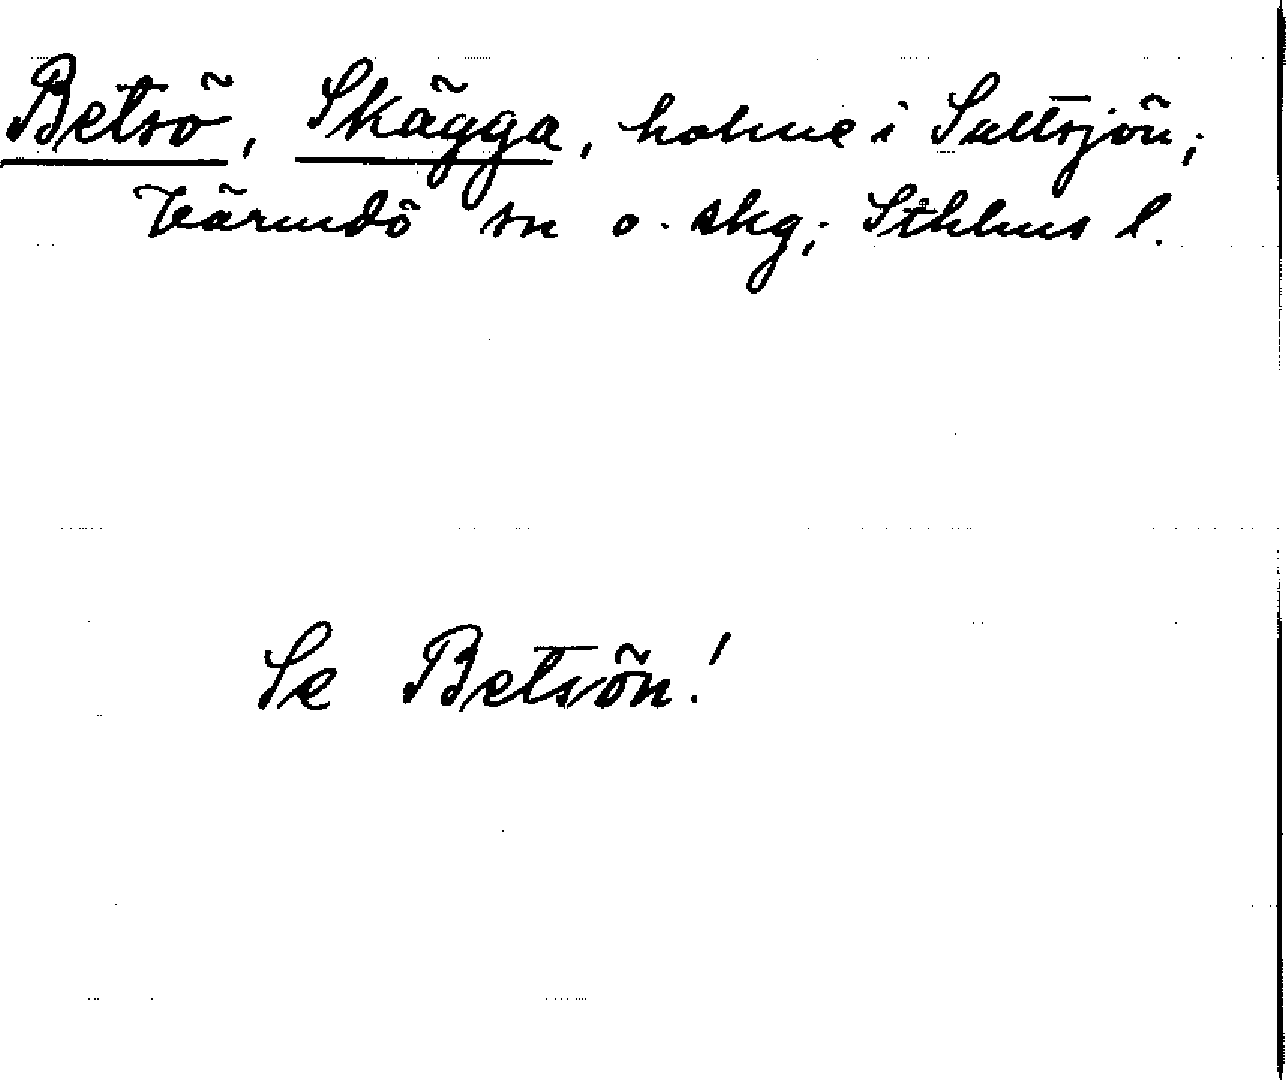 Betsö, Skägga, holme i Saltsjön;
Värmdö sn o. skg; Sthlms l.
Se Betsön!